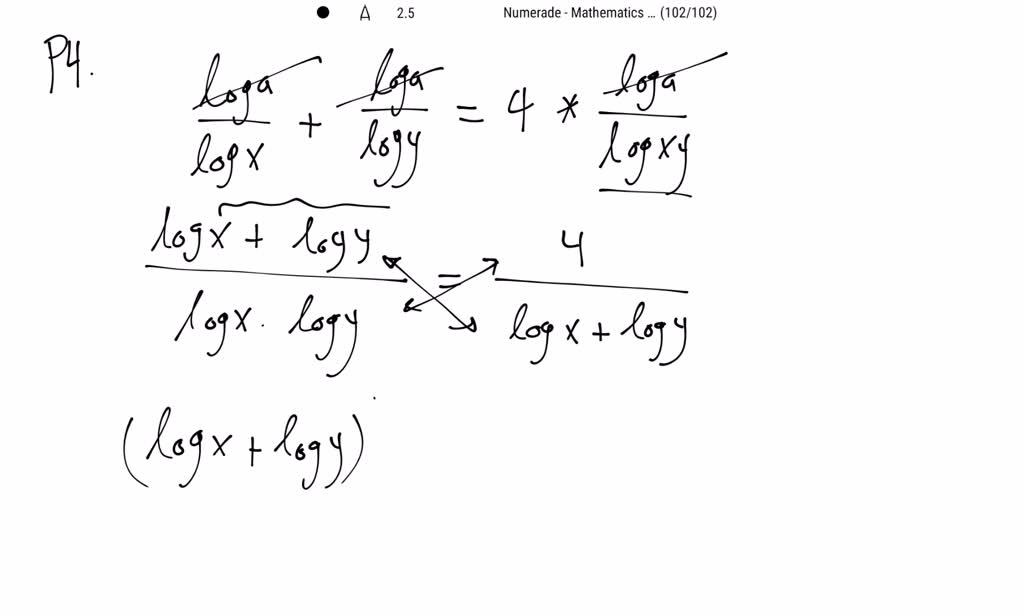 2.5 Numerade - Mathematics ... (102/102)
P4.
loga/logx + loga/logy = 4 * loga/logxy
(logx + logy)/(logx · logy) = 4/(logx + logy)
(logx + logy)